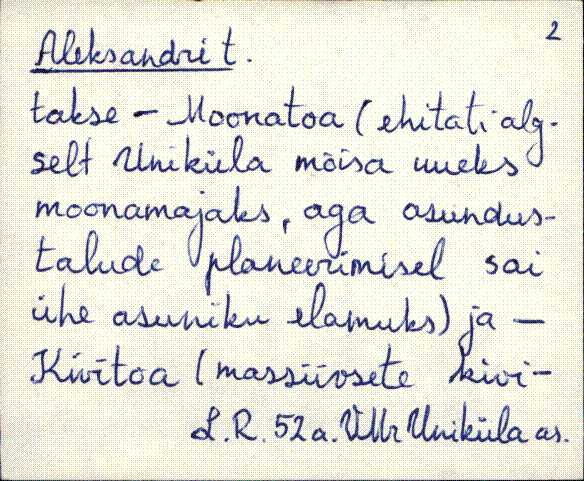 2
Aleksandri t.
takse - Moonatoa (ehitati alg-
selt Uniküla mõisa uueks
moonamajaks, aga asundus-
talude planeerimisel sai
ühe asuniku elamuks) ja -
Kivitoa (massiivsete kivi-
L.R. 52a. VMr Uniküla as.